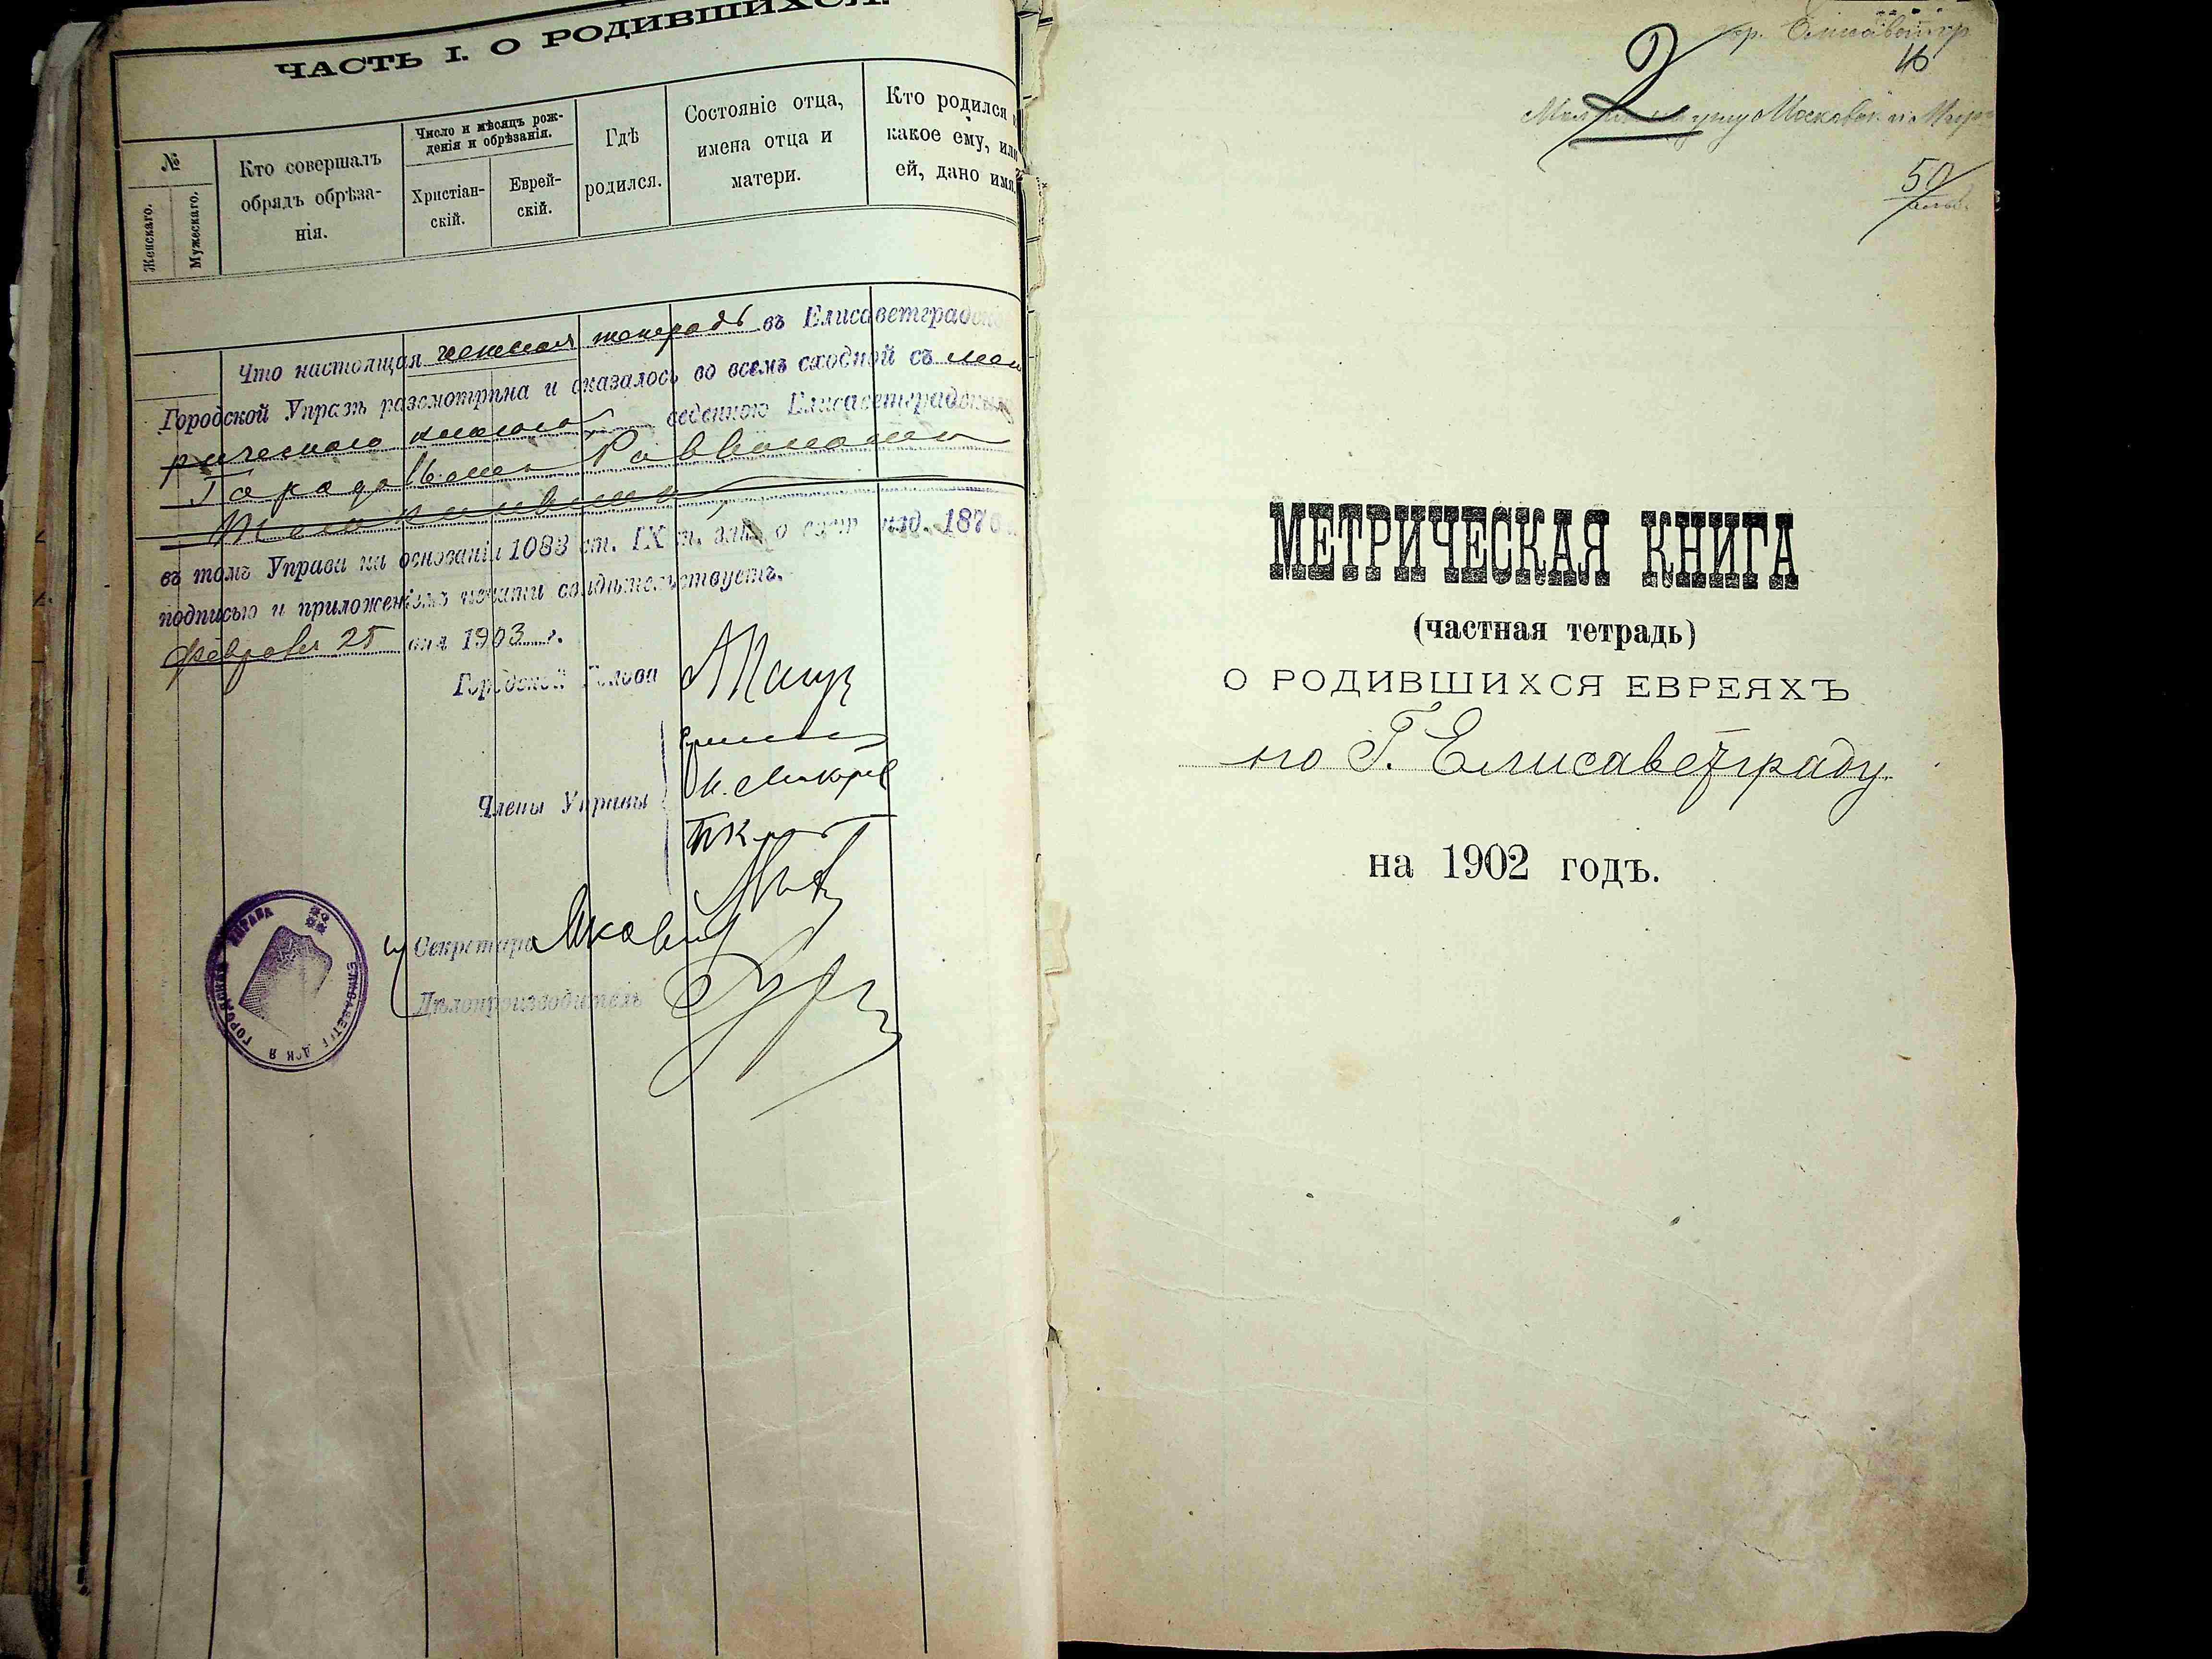 ЧАСТЬ I. О РОДИВШИХСЯ.
№
Женскаго.
Мужескаго.
Кто совершалъ
обрядъ обрѣза-
нія.
Число и мѣсяцъ рож-
денія и обрѣзанія.
Христіан-
скій.
Еврей-
скій.
Гдѣ
родился.
Состояніе отца,
имена отца и
матери.
Кто родился
какое ему, или
ей, дано имя.
Что настоящая тетрадь въ Елисаветградской
Городской Управѣ разсмотрѣна и оказалось во всемъ сходной съ мет
рическою книгою веденною Елисаветградскимъ
Городовымъ Раввиномъ
въ томъ Управа на основаніи 1083 ст. IX т. зак. о сост. изд. 1876 г.
подписью и приложеніемъ печати свидѣтельствуетъ.
Февраля 25 дня 1903 г.
Городской Голова
Члены Управы
и Секретарь
Дѣлопроизводитель
ЕЛИСАВЕТГРАДСКАЯ ГОРОДСКАЯ УПРАВА
гор. Елисаветгр
16
2
50
МЕТРИЧЕСКАЯ КНИГА
(частная тетрадь)
О РОДИВШИХСЯ ЕВРЕЯХЪ
по Г. Елисаветграду.
на 1902 годъ.